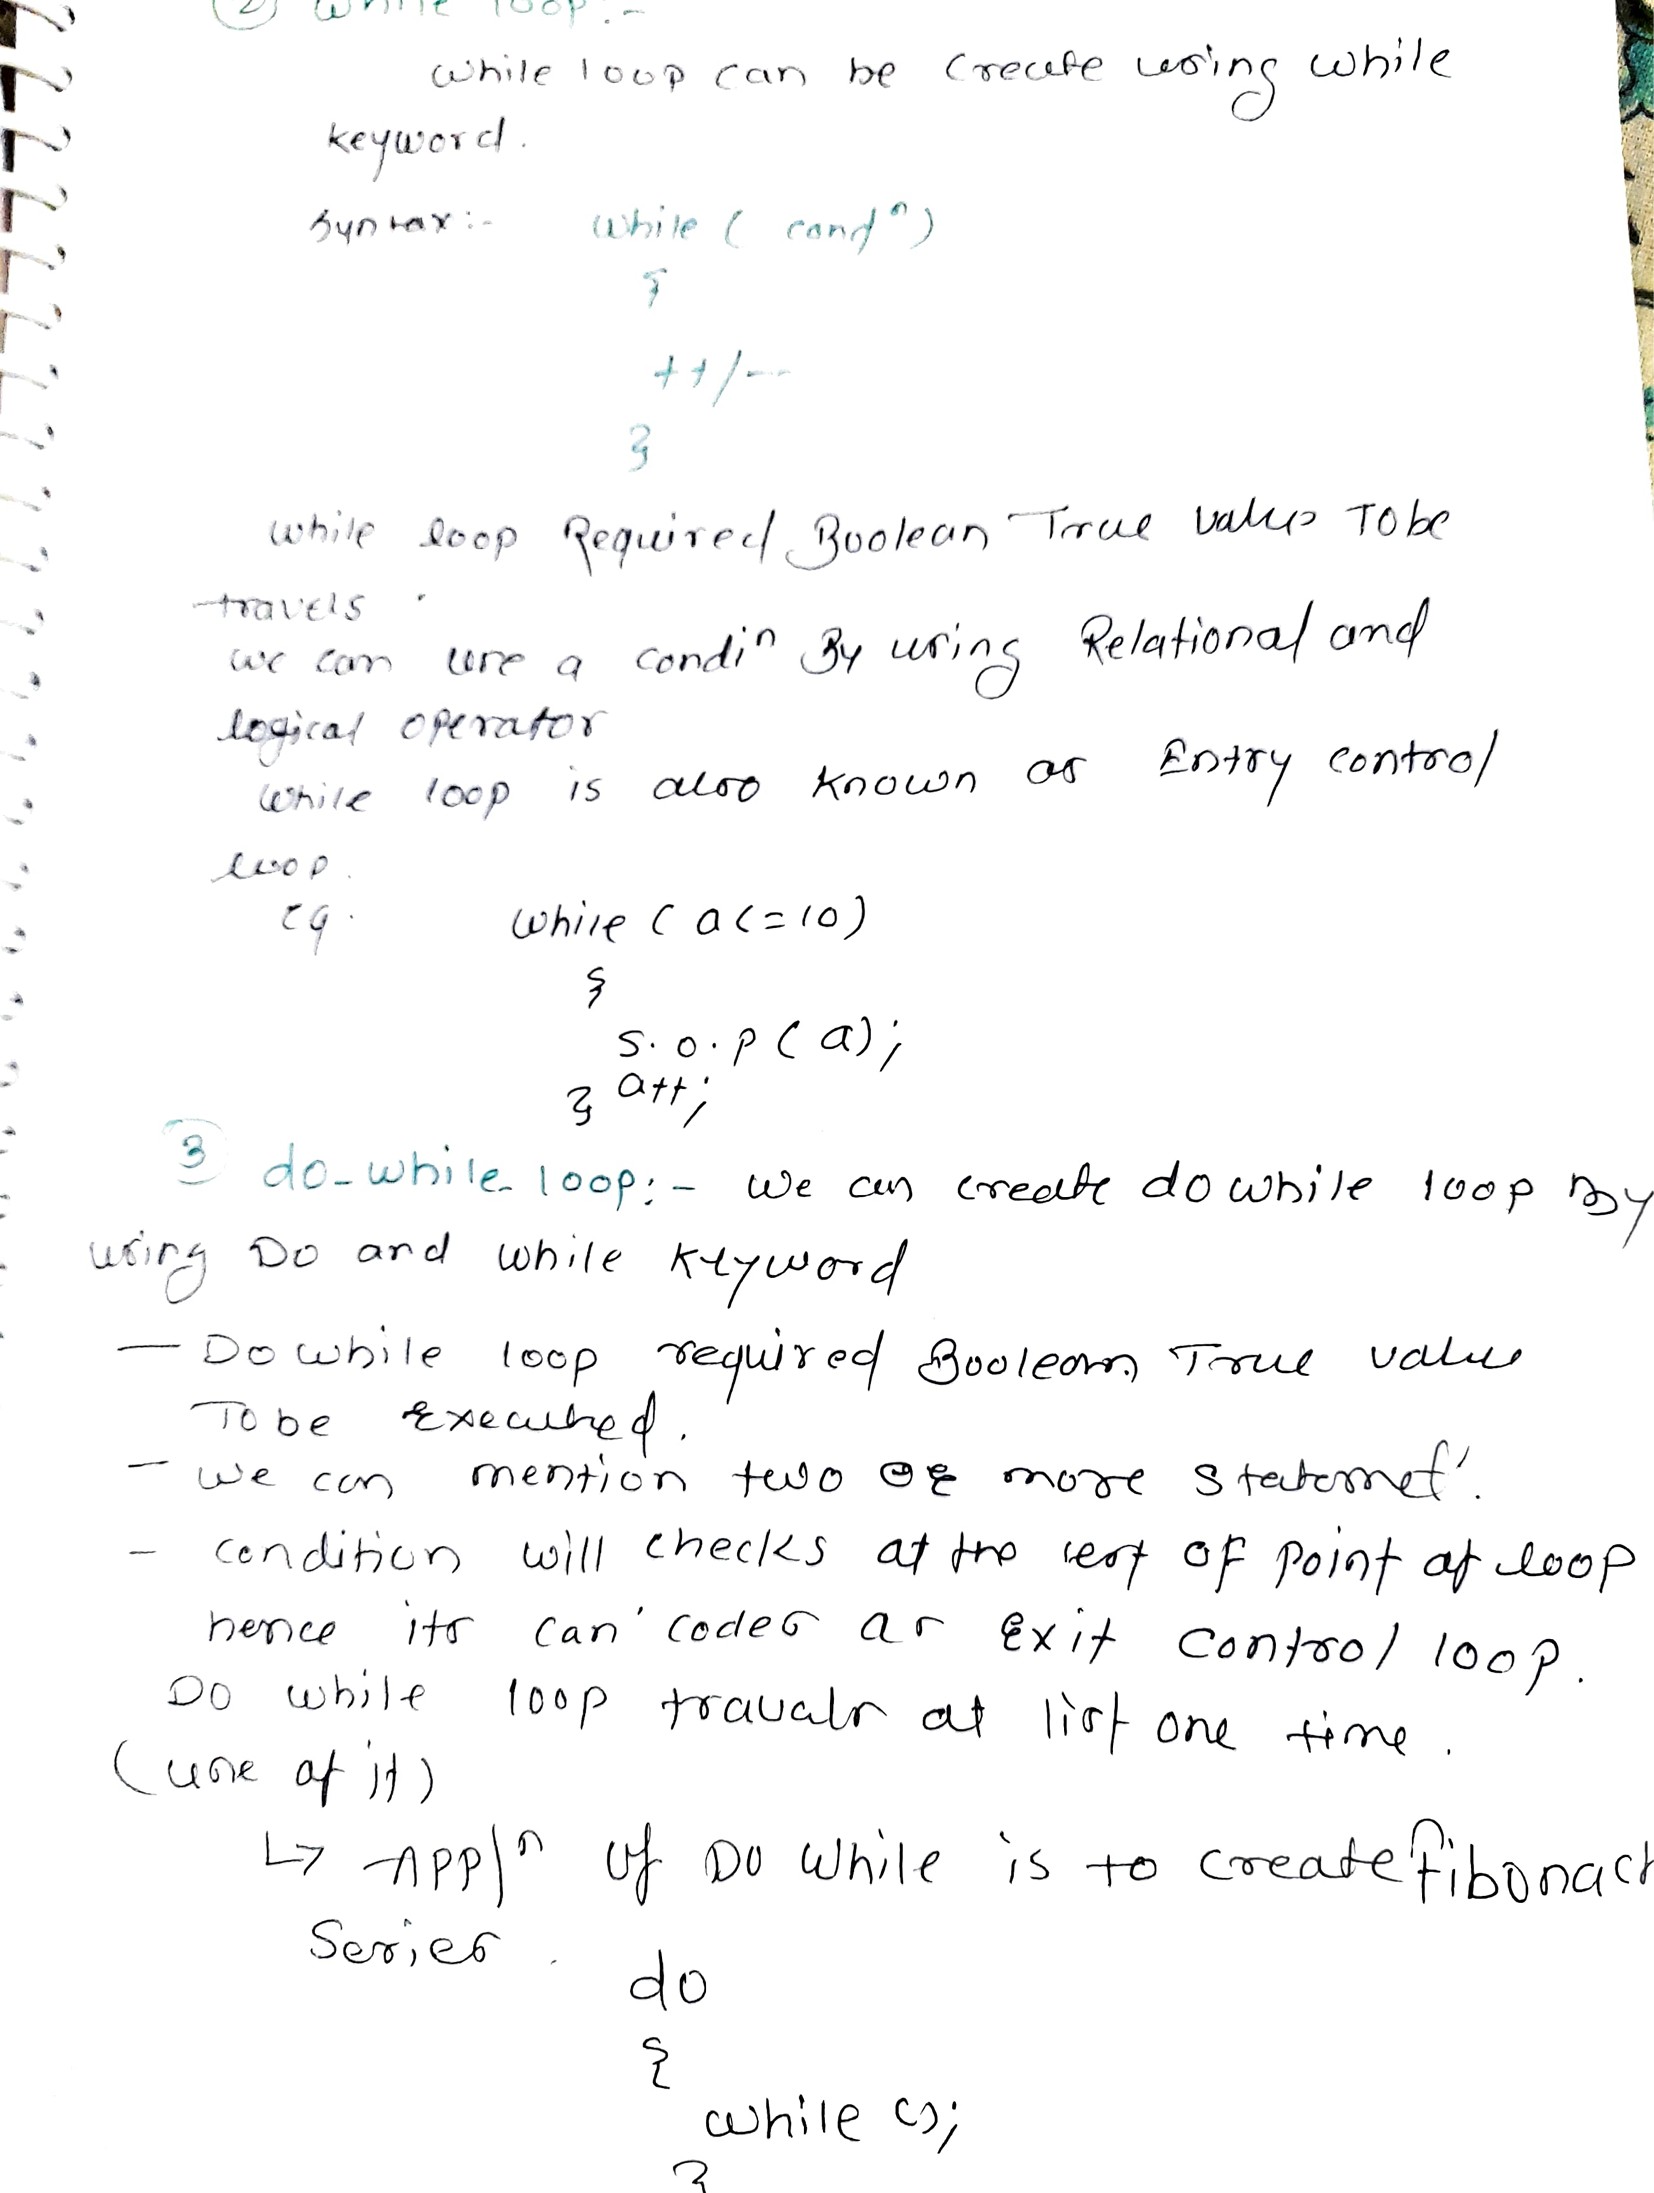 ② While loop:-
While loop can be create using while
keyword.
Syntax:- While ( condⁿ)
{
++/--
}
while loop Required Boolean True value To be
travels.
we can use a condiⁿ By using Relational and
logical operator
While loop is also known as Entry control
loop.
Eg. While ( a<=10)
{
S.o.p( a);
} a++;
③ do-while loop:- We can create do while loop By
using Do and while keyword
— Do while loop required Boolean True value
To be Executed.
— We can mention two or more
- condition will checks at the of point of loop
hence its can codes as Exit control loop.
Do while loop travals at list one time.
(use of it)
↳ Applⁿ of Do While is to create fibonaci
Series.
do
{
while ();
}